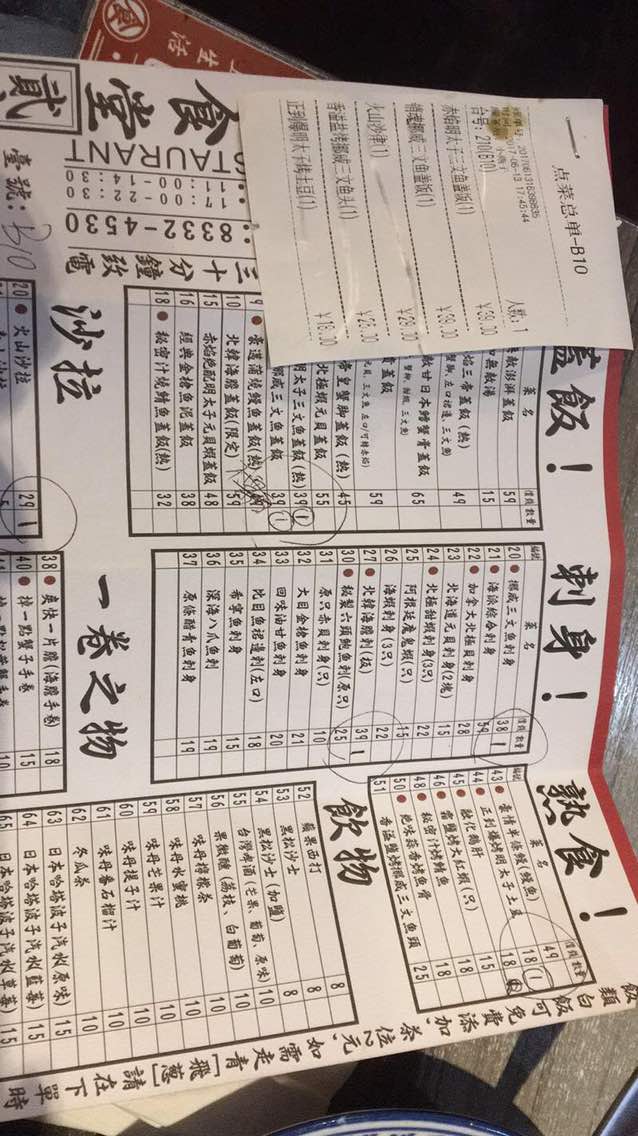 点菜总单-B10
人数: 1
台号: 2100,B10,
¥39.00
赤焰明太子三文鱼盖饭(1)
¥39.00
挪威三文鱼盖饭(1)
¥29.00
火山沙津(1)
¥25.00
香溢盐烤挪威三文鱼头(1)
¥18.00
正到爆明太子烤土豆(1)
食堂
貳
STAURANT
11:00-14:30
17:00-22:30
8332-4530
三十分鐘致電
臺號: B10
蓋飯!
菜名 價錢 數量
59
15
焰三帝蓋飯(熱) 49
敵甘日本鱈蟹膏蓋飯 65
蓋飯 59
帝皇蟹腳蓋飯(熱) 45
北極蝦元貝蓋飯 55
明太子三文魚蓋飯(熱) 39 1
挪威三文魚蓋飯 39 1
9 豪邁蒲燒鰻魚蓋飯(熱)
10 北韓海膽蓋飯(限定) 59
15 赤焰炮艇明太子元貝蝦蓋飯 48
16 經典金槍魚泥蓋飯 38
18 秘密汁燒鯖魚蓋飯(熱) 32
沙拉
20 火山沙拉 29 1
刺身!
編號 菜名 價錢 數量
20 挪威三文魚刺身 38 1
21 海派綜合刺身 59
22 加拿大北極貝刺身 28
23 北海道元貝刺身(2塊) 15
24 北極甜蝦刺身(3只) 22
25 阿根廷魔鬼蝦(只) 15
26 海蝦刺身(3只) 22
27 北韓海膽刺(板) 39 1
30 秘製六頭鮑魚刺(原只) 25
31 原只赤貝刺身(只) 10
32 大目金槍魚刺身 21
33 回味油甘魚刺身 20
34 比目魚裙邊刺(左口) 18
35 希寧魚刺身 15
36 深海八爪魚刺 19
37 原條醋青魚刺身 19
一卷之物
38 爽快一片膽(海膽手卷) 18
40 掉一點蟹子手卷 15
熟食!
編號 菜名 價錢 數量
43 豪情半條鰻(鰻魚) 49
44 正到爆烤明太子土豆 18 1
45 融化鵝肝 18
46 霜鹽烤大紅蝦(只) 15
48 秘密汁烤鯖魚 18
50 絶味蒜香烤魚骨 18
51 香溢鹽烤挪威三文魚頭 25
飲物
52 蘋果西打 8
53 黑松沙士 8
54 黑松沙士(加鹽) 10
55 台灣啤酒(芒果、葡萄、原味) 10
56 果微醺(荔枝、白葡萄) 10
57 味丹檸檬茶 10
58 味丹水蜜桃 10
59 味丹芒果汁 10
60 味丹提子汁 10
61 味丹番石榴汁 10
62 冬瓜茶 10
63 日本哈塔波子汽水(原味) 15
64 日本哈塔波子汽水(藍莓) 15
65 日本哈塔波子汽水(草莓) 15
飯類白飯可免費添加,
茶位2元,
如需走青
「飛蔥」請在下單時